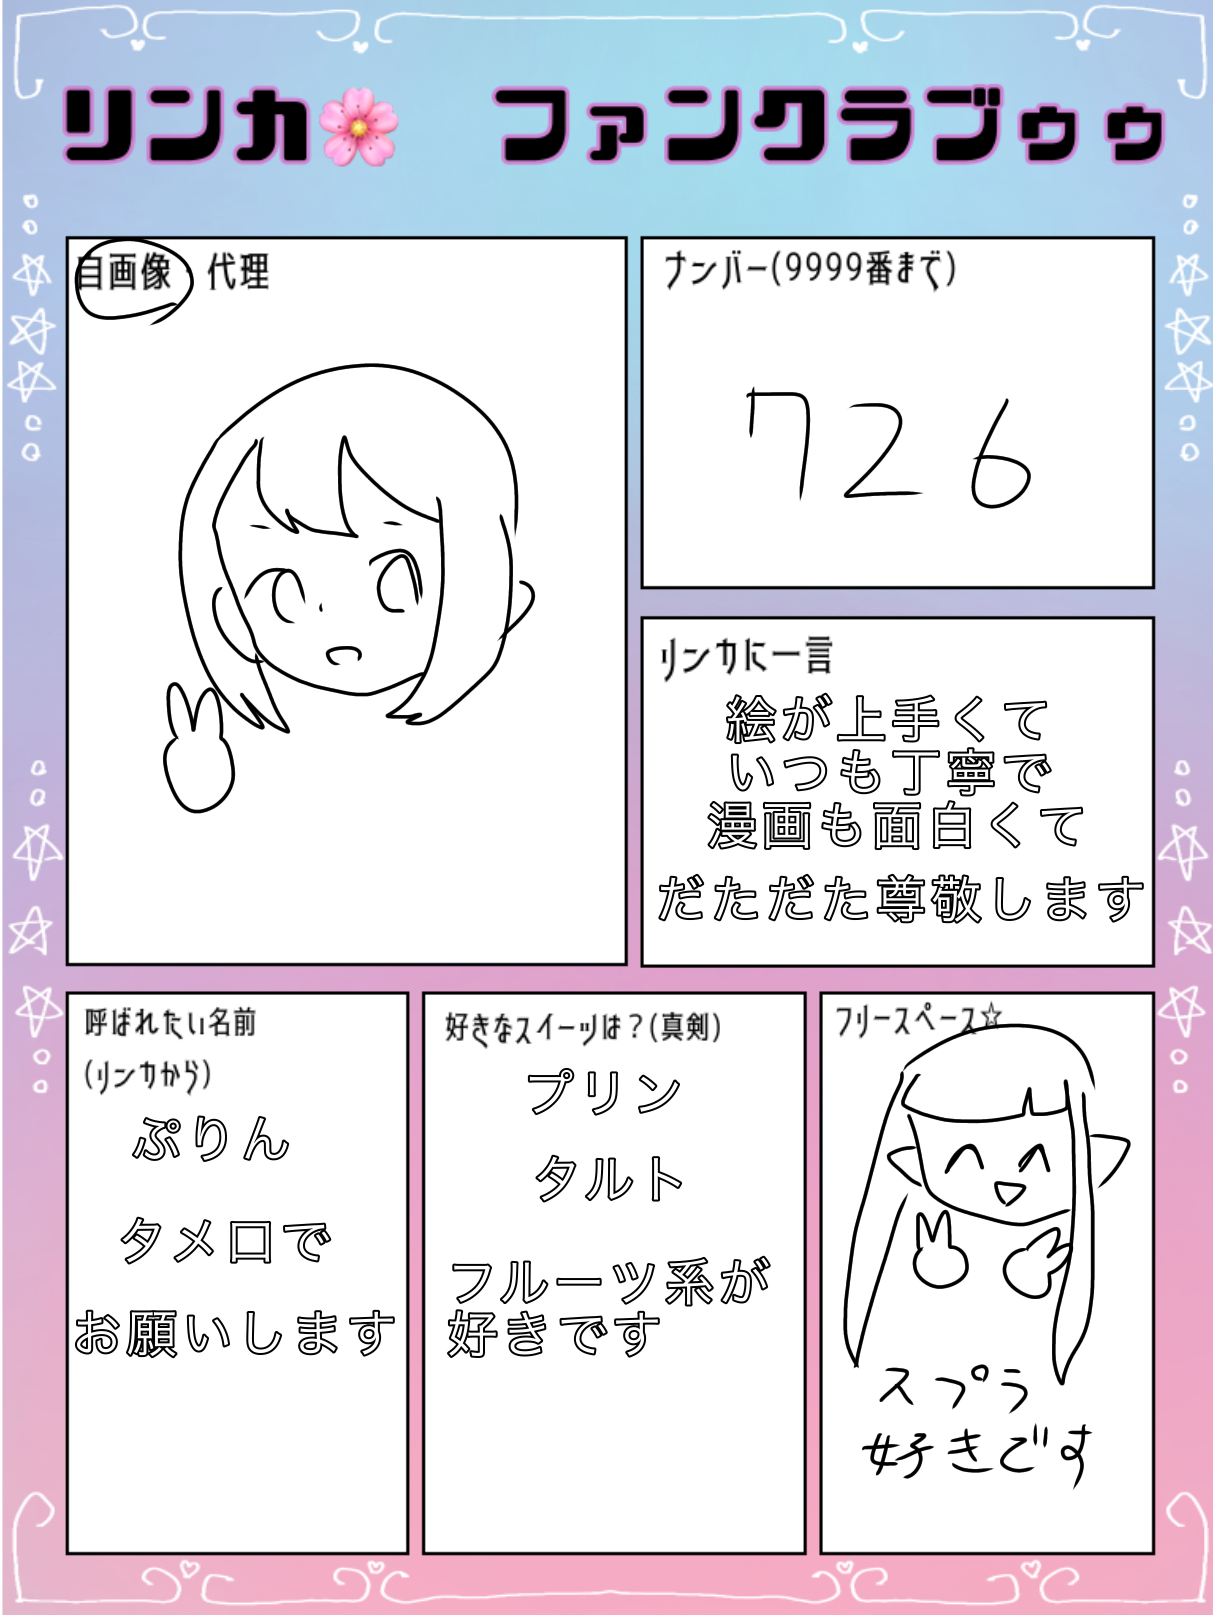 リンカ🌸 ファンクラブゥゥ
自画像・代理
ナンバー(9999番まで)
726
リンカに一言
絵が上手くて
いつも丁寧で
漫画も面白くて
だただた尊敬します
呼ばれたい名前
(リンカから)
ぷりん
タメ口で
お願いします
好きなスイーツは?(真剣)
プリン
タルト
フルーツ系が
好きです
フリースペース☆
スプラ
好きです